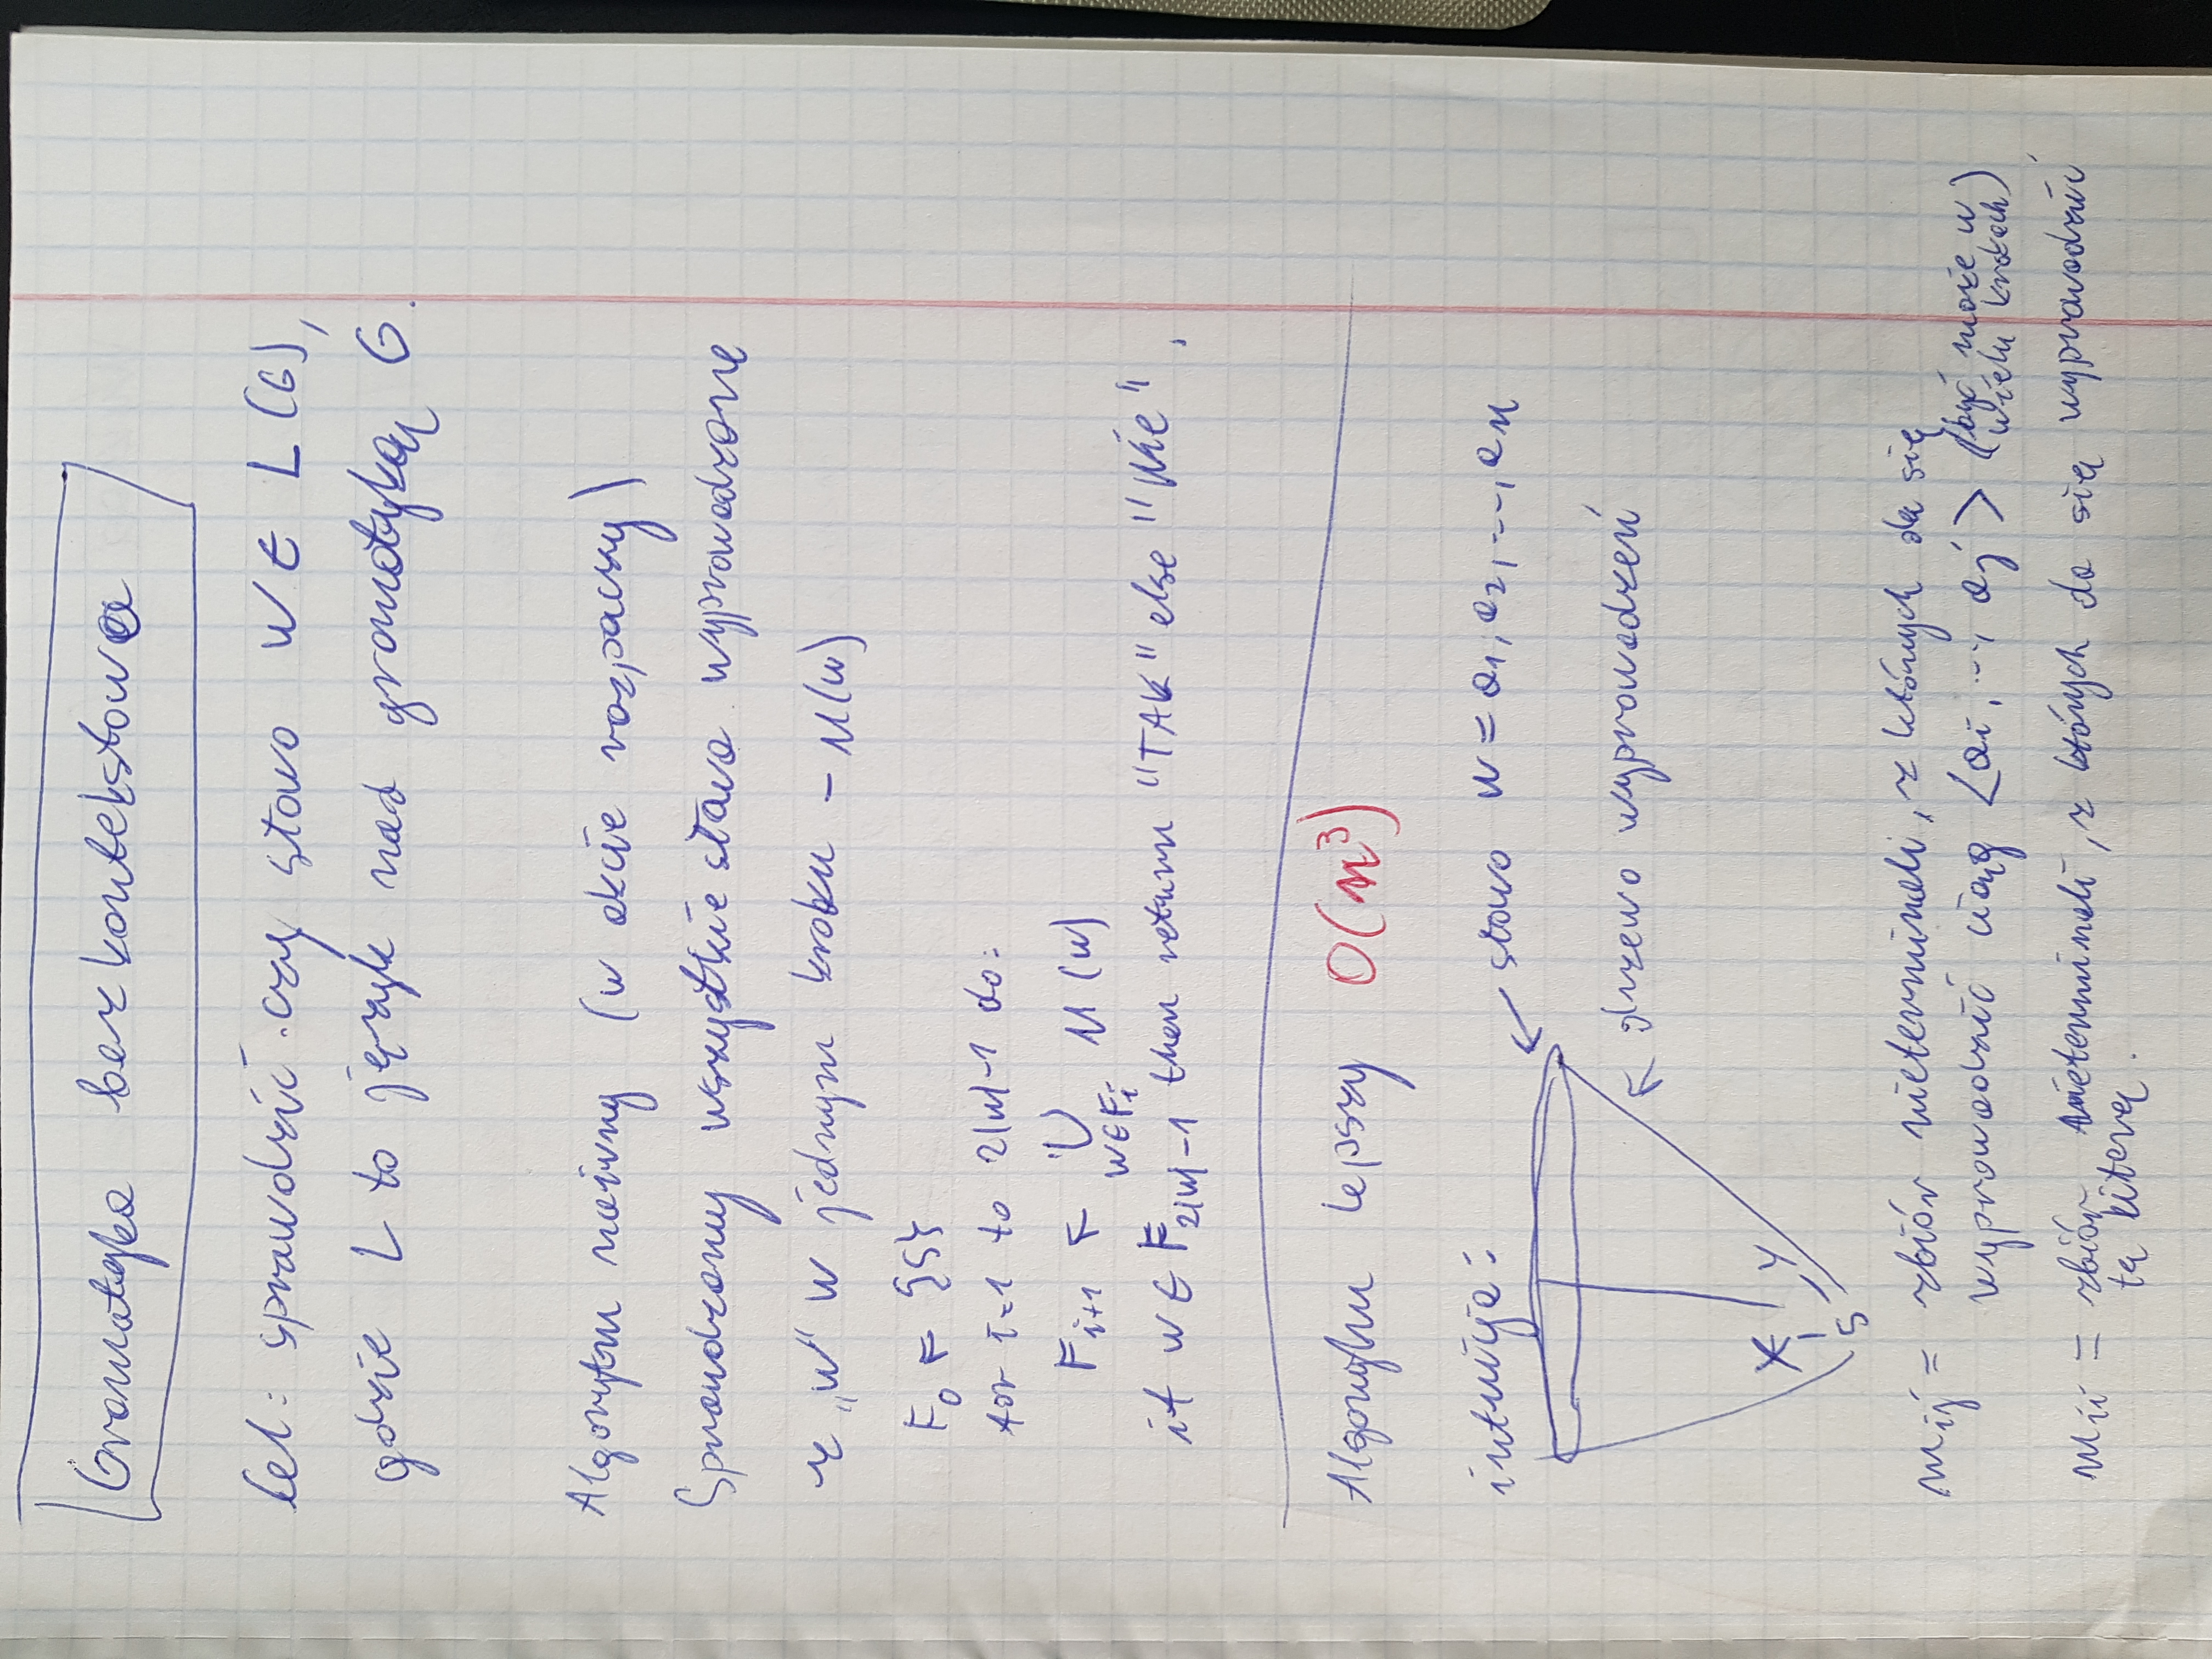 Gramatyka bezkontekstowa
Cel: sprawdzić czy słowo w ∈ L(G),
gdzie L to język nad gramatyką G.
Algorytm naiwny (w akcie rozpaczy)
Sprawdzamy wszystkie słowa wyprowadzone
z „w" w jednym kroku - U(w)
F₀ ← {S}
for i=1 to 2|w|-1 do:
F_{i+1} ← ⋃_{w∈F_i} U(w)
if w ∈ F_{2|w|-1} then return "TAK" else "Nie".
Algorytm lepszy O(n³)
intuicja:
słowo w = a₁, a₂, ..., aₙ
drzewo wyprowadzeń
X Y
S
m_{ij} = zbiór nieterminali, z których da się
wyprowadzić ciąg <a_i, ..., a_j> (być może w
wielu krokach)
m_{ii} = zbiór nieterminali, z których da się wyprowadzić
tą literą.